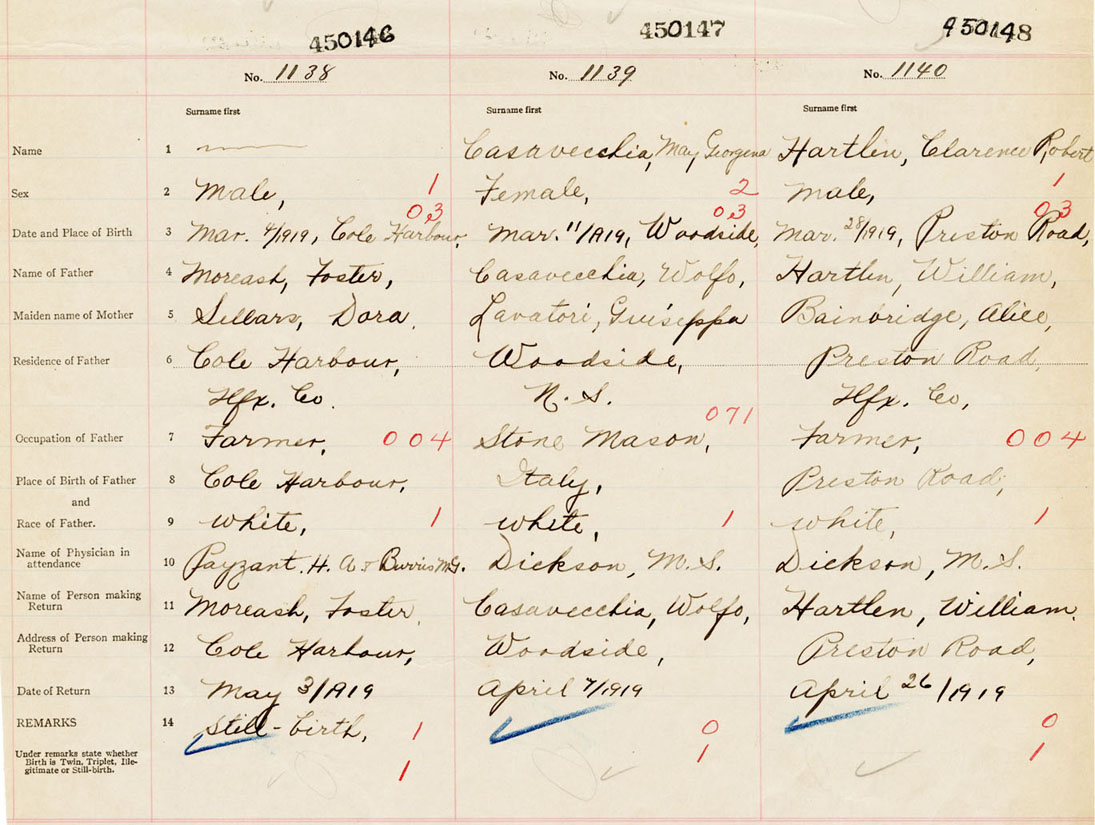 450146 450147 450148
No. 1138 No. 1139 No. 1140
Surname first Surname first Surname first
Name 1 Casavecchia, May, Georgena Hartlen, Clarence Robert
Sex 2 Male, 1 Female, 2 Male, 1
03 03 03
Date and Place of Birth 3 Mar. 4/1919, Cole Harbour, Mar. 11/1919, Woodside, Mar. 28/1919, Preston Road,
Name of Father 4 Moreash, Foster, Casavecchia, Wolfo, Hartlen, William,
Maiden name of Mother 5 Sellars, Dora, Lavatori, Guiseppa Bainbridge, Alice,
Residence of Father 6 Cole Harbour, Woodside, Preston Road,
Hfx. Co. N. S. Hfx. Co,
071
Occupation of Father 7 Farmer, 004 Stone Mason, Farmer, 004
Place of Birth of Father 8 Cole Harbour, Italy, Preston Road,
and
Race of Father. 9 white, 1 white, 1 white, 1
Name of Physician in
attendance 10 Payzant. H. A & Burris M.G. Dickson, M. S. Dickson, M. S.
Name of Person making
Return 11 Moreash, Foster, Casavecchia, Wolfo, Hartlen, William,
Address of Person making
Return 12 Cole Harbour, Woodside, Preston Road,
Date of Return 13 May 3/1919 April 7/1919 April 26/1919
REMARKS 14 Still-birth, 1 0 0
Under remarks state whether
Birth is Twin, Triplet, Ille-
gitimate or Still-birth. 1 1 1